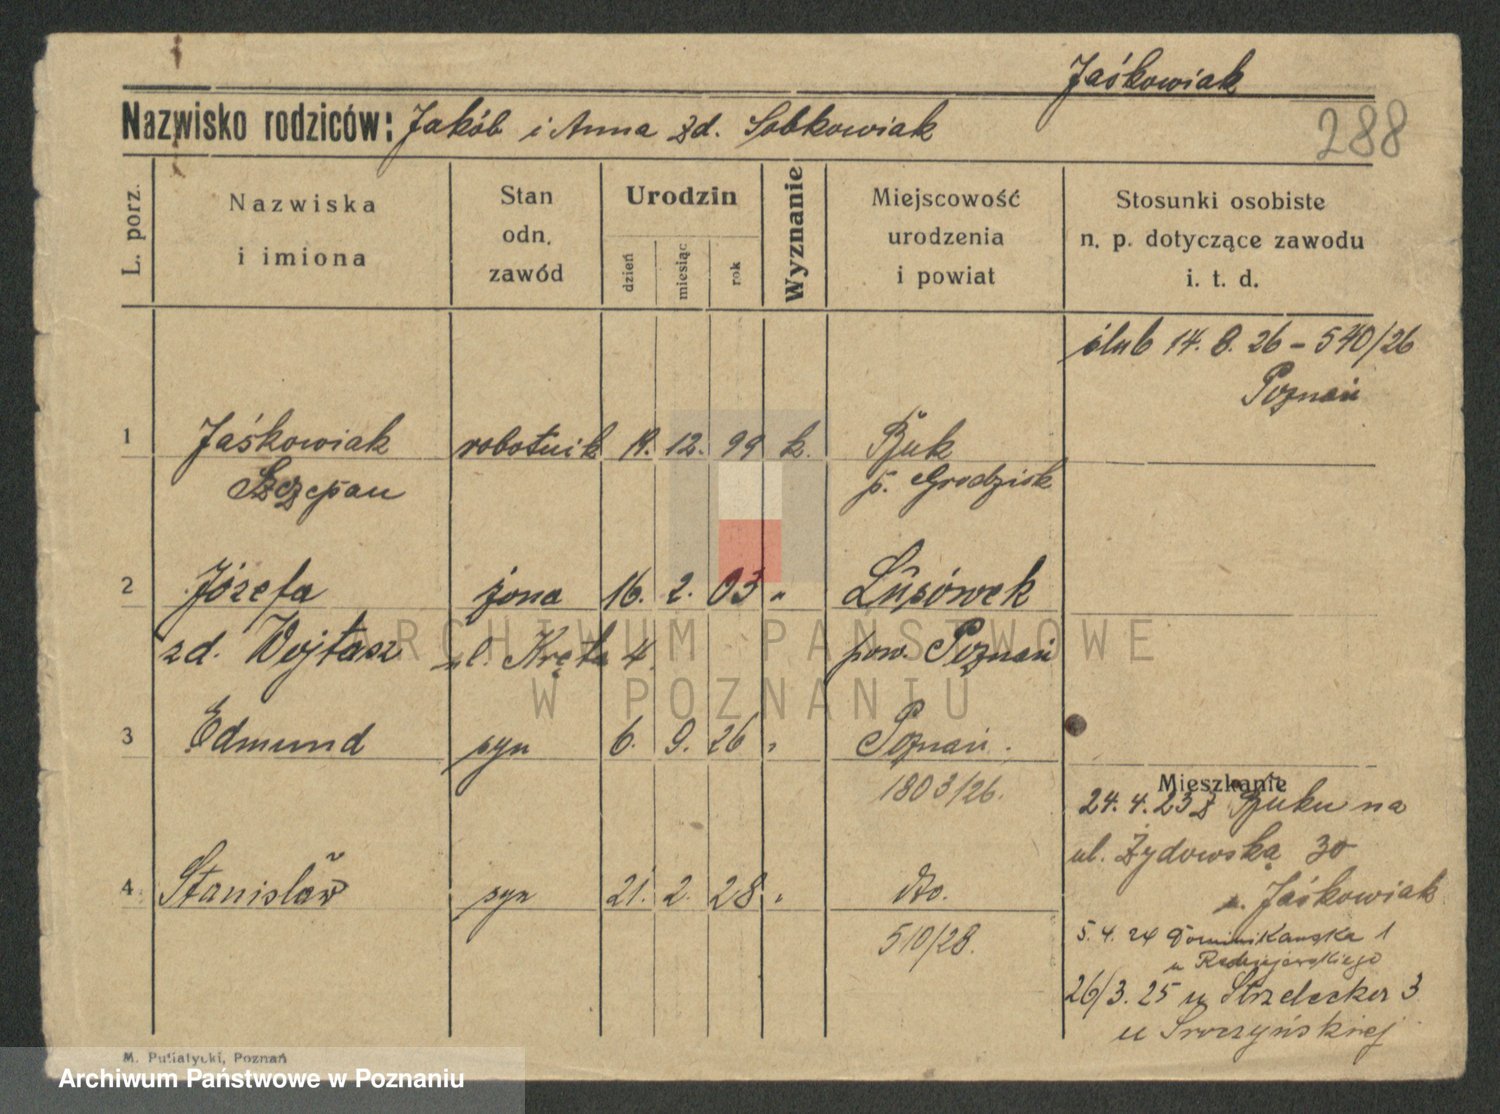 Jaśkowiak
Nazwisko rodziców: Jakób i Anna zd. Sobkowiak
288
L. porz.
Nazwiska i imiona
Stan odn. zawód
Urodzin
dzień miesiąc rok
Wyznanie
Miejscowość urodzenia i powiat
Stosunki osobiste n. p. dotyczące zawodu i. t. d.
ślub 14. 8. 26 – 540/26
Poznań
1 Jaśkowiak robotnik 12. 99 k. Buk
Szczepan p. Grodzisk
2 Józefa żona 16. 2. 03 " Lusówek
zd. Wojtasz ul. Kręta 4 pow. Poznań
3 Edmund syn 6. 9. 26 " Poznań.
1803/26.
Mieszkanie
24. 4. 23 z Buku na
ul. Żydowską 30
u. Jaśkowiak
4 Stanisław syn 21. 2. 28 " dto.
510/28.
5. 4. 24 Dominikańska 1
u
26/3. 25 u Strzelecka 3
u Sroczyńskiej
M. Putiatycki, Poznań
ARCHIWUM PAŃSTWOWE
W POZNANIU
Archiwum Państwowe w Poznaniu